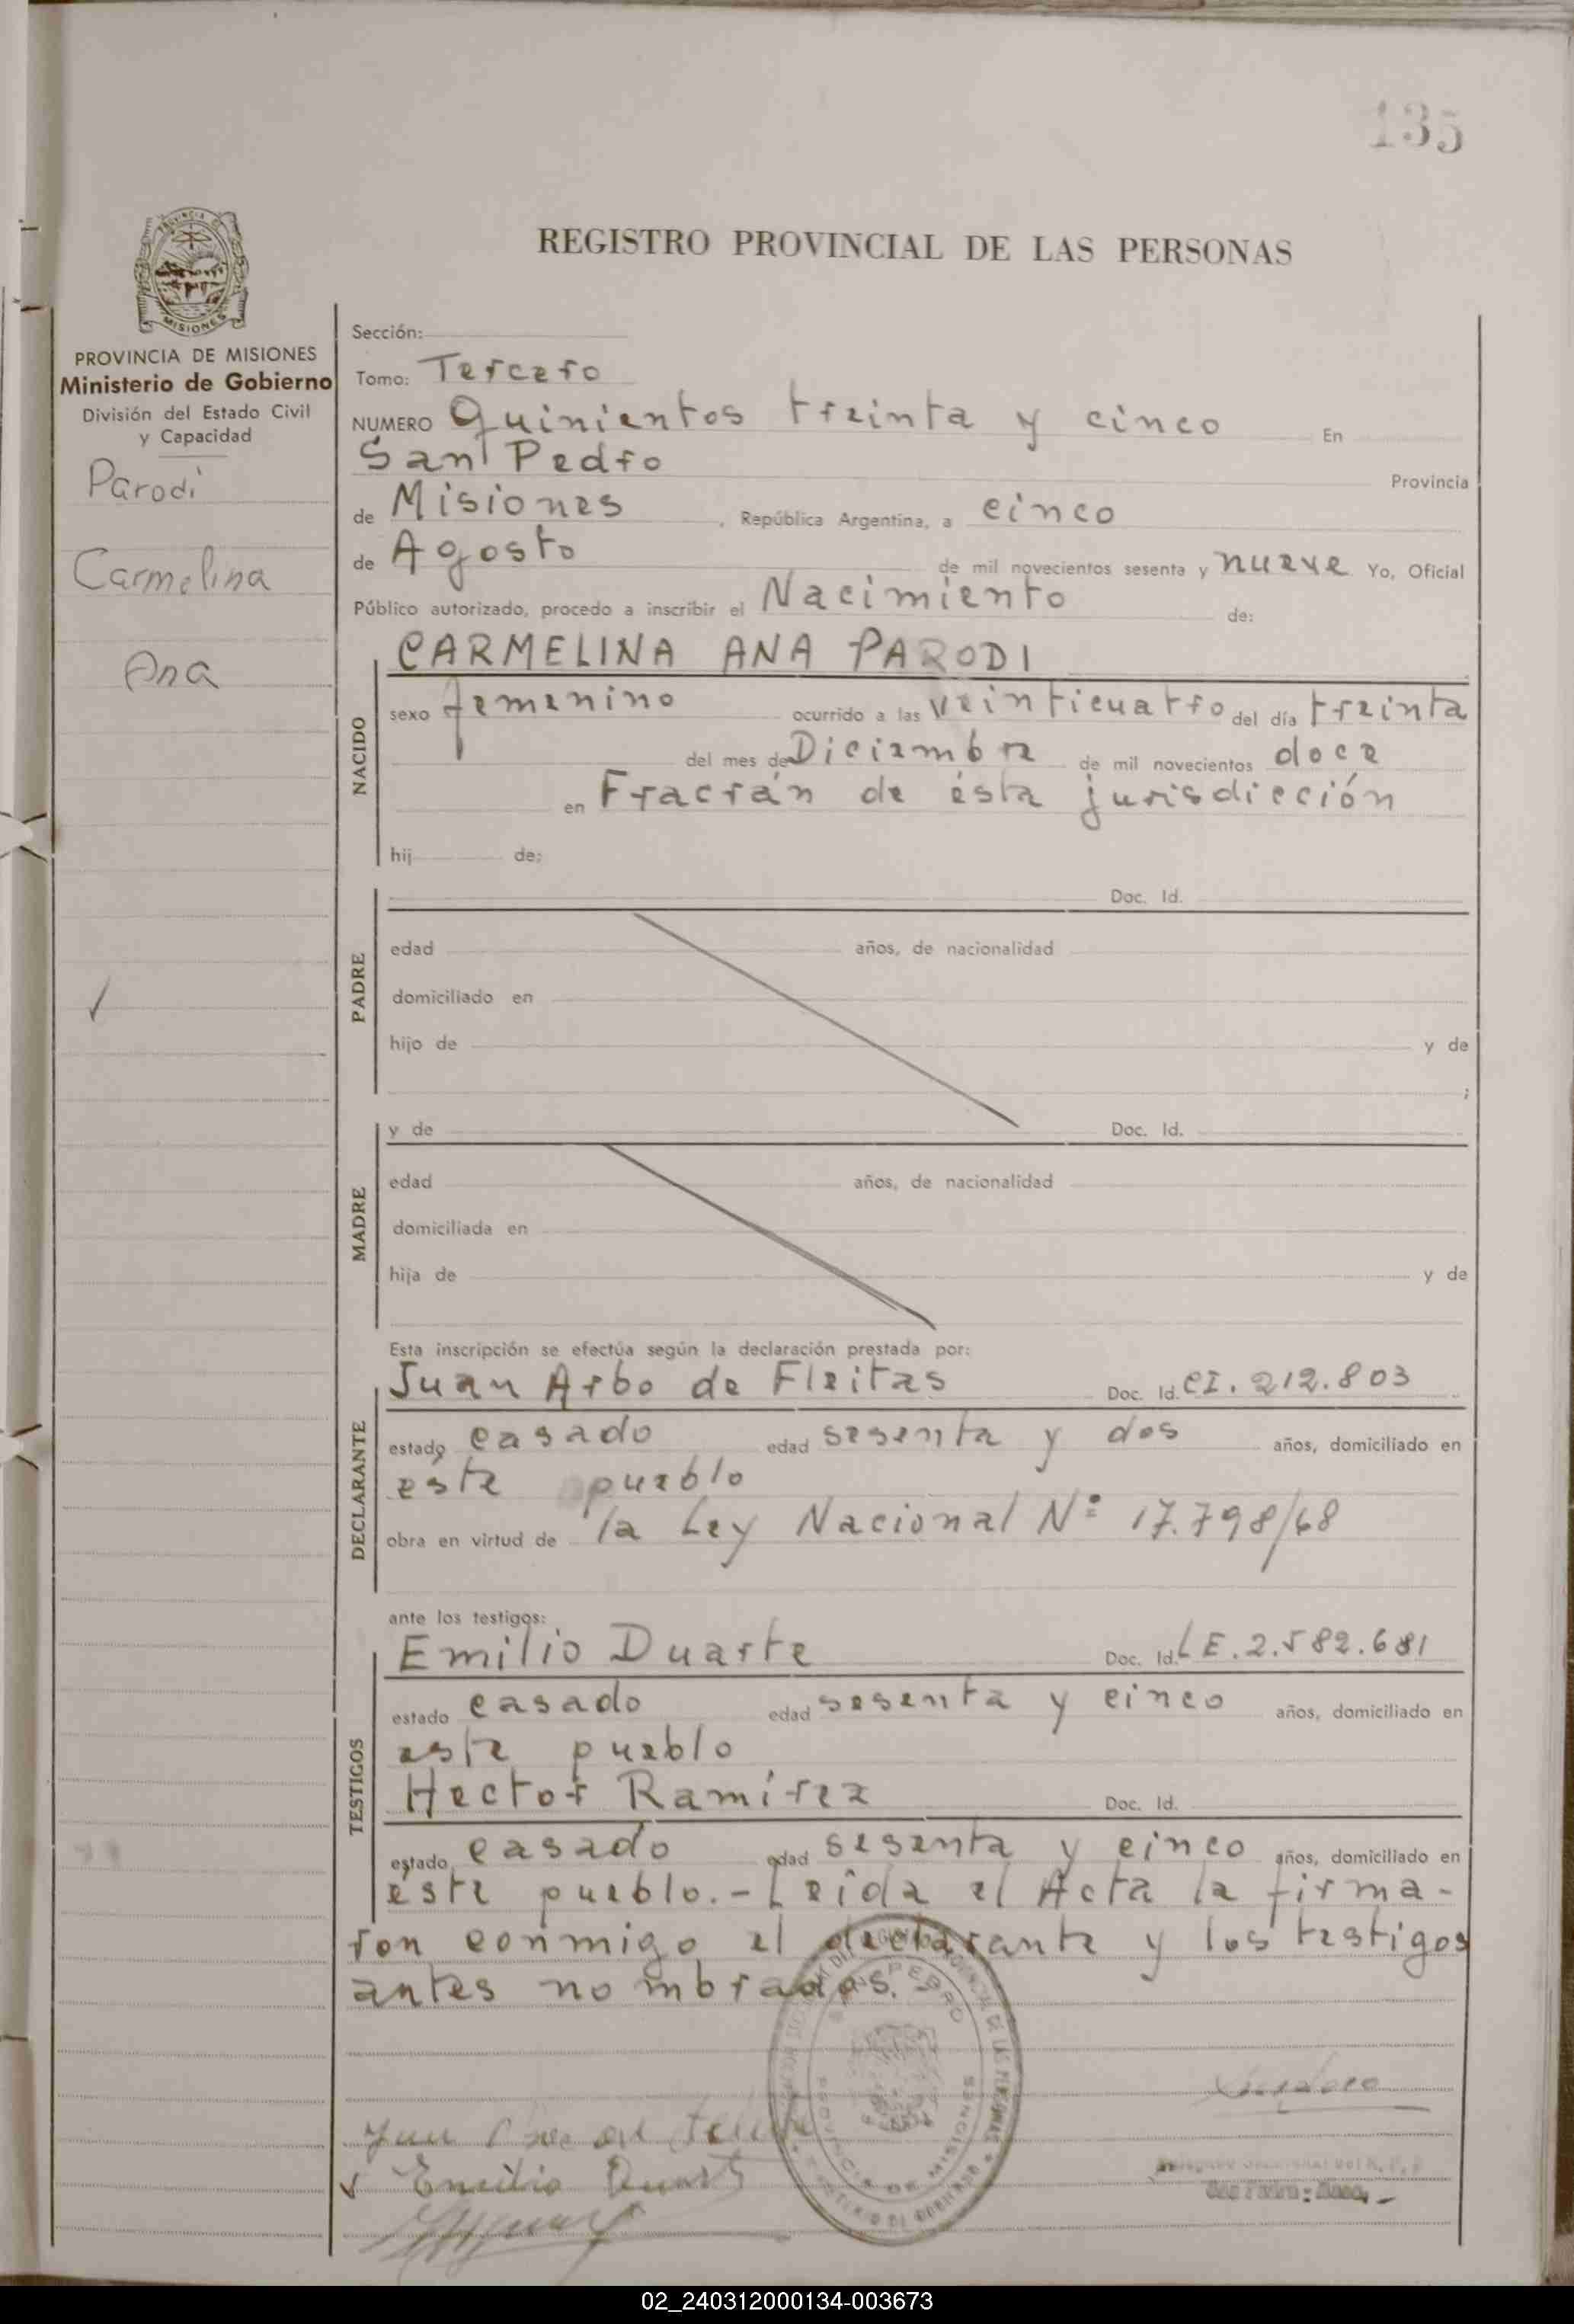 135
REGISTRO PROVINCIAL DE LAS PERSONAS
PROVINCIA DE MISIONES
Ministerio de Gobierno
División del Estado Civil
y Capacidad
Parodi
Carmelina
Ana
Sección:
Tomo: Tercero
NUMERO Quinientos treinta y cinco En
San Pedro Provincia
de Misiones, República Argentina, a cinco
de Agosto de mil novecientos sesenta y nueve Yo, Oficial
Público autorizado, procedo a inscribir el Nacimiento de:
NACIDO
CARMELINA ANA PARODI
sexo femenino ocurrido a las veinticuatro del día treinta
del mes de Diciembre de mil novecientos doce
en Fracrán de ésta jurisdicción
hij de:
PADRE
Doc. Id.
edad años, de nacionalidad
domiciliado en
hijo de y de
;
MADRE
y de Doc. Id.
edad años, de nacionalidad
domiciliada en
hija de y de
Esta inscripción se efectúa según la declaración prestada por:
DECLARANTE
Juan Arbo de Fleitas Doc. Id. CI. 212.803
estado casado edad sesenta y dos años, domiciliado en
éste pueblo
obra en virtud de la Ley Nacional Nº 17.798/68
ante los testigos:
TESTIGOS
Emilio Duarte Doc. Id. LE. 2.582.681
estado casado edad sesenta y cinco años, domiciliado en
este pueblo
Hector Ramírez Doc. Id.
estado casado edad sesenta y cinco años, domiciliado en
éste pueblo.- Leída el Acta la firma-
ron conmigo el declarante y los testigos
antes nombrados.-
SAN PEDRO
PROVINCIA DE MISIONES
Emilio Duarte
02_240312000134-003673